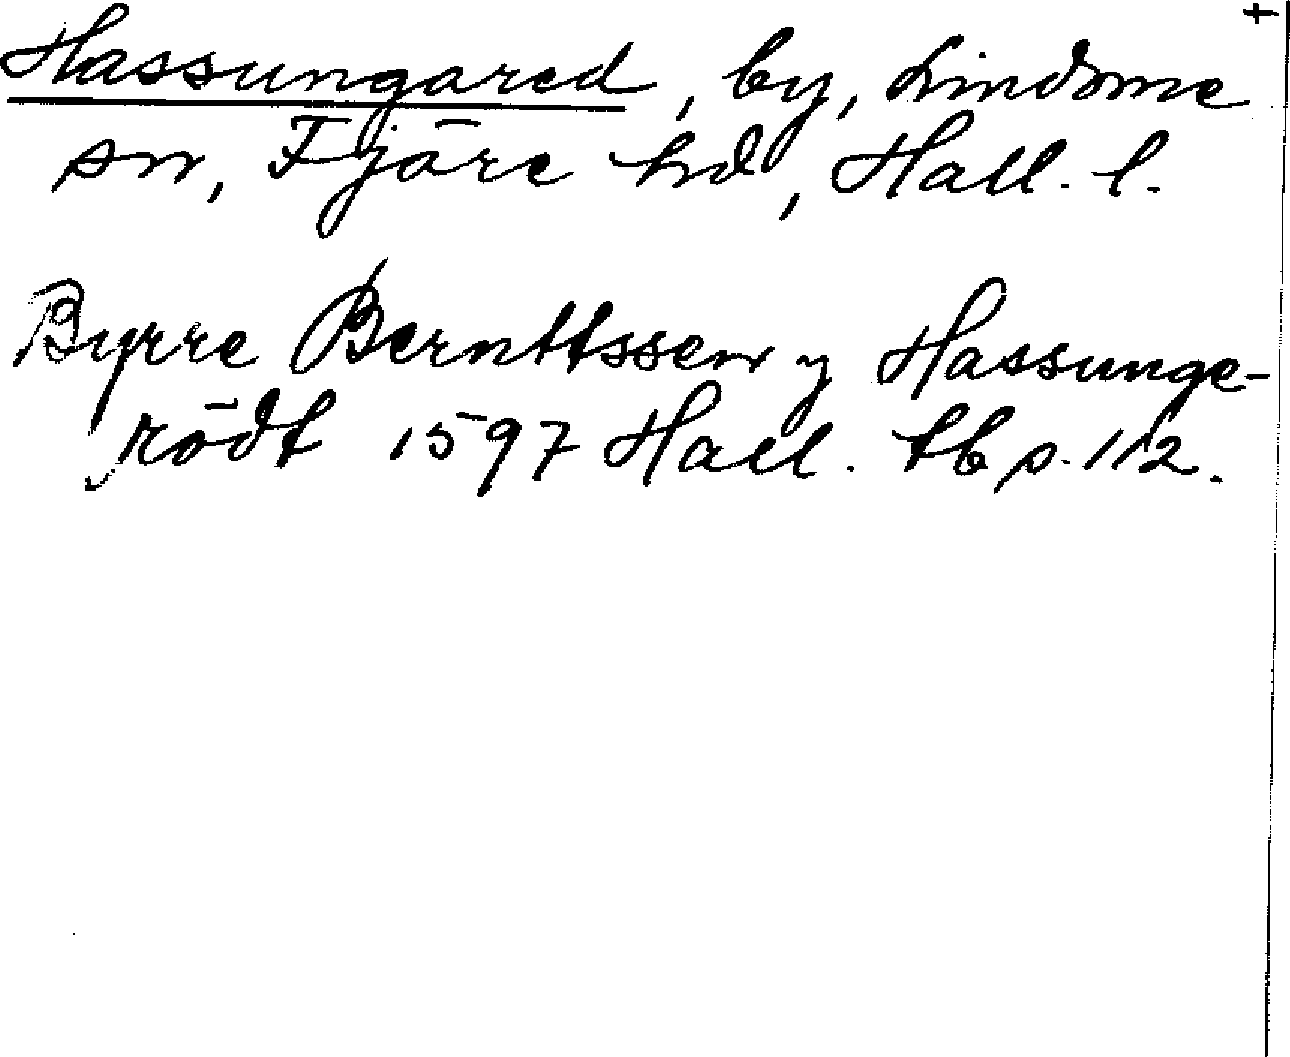 Hassungared, by, Lindome
sn, Fjäre hd, Hall. l.
Byrre Bernttssen y Hassunge-
rödt 1597 Hall. tb p. 112.